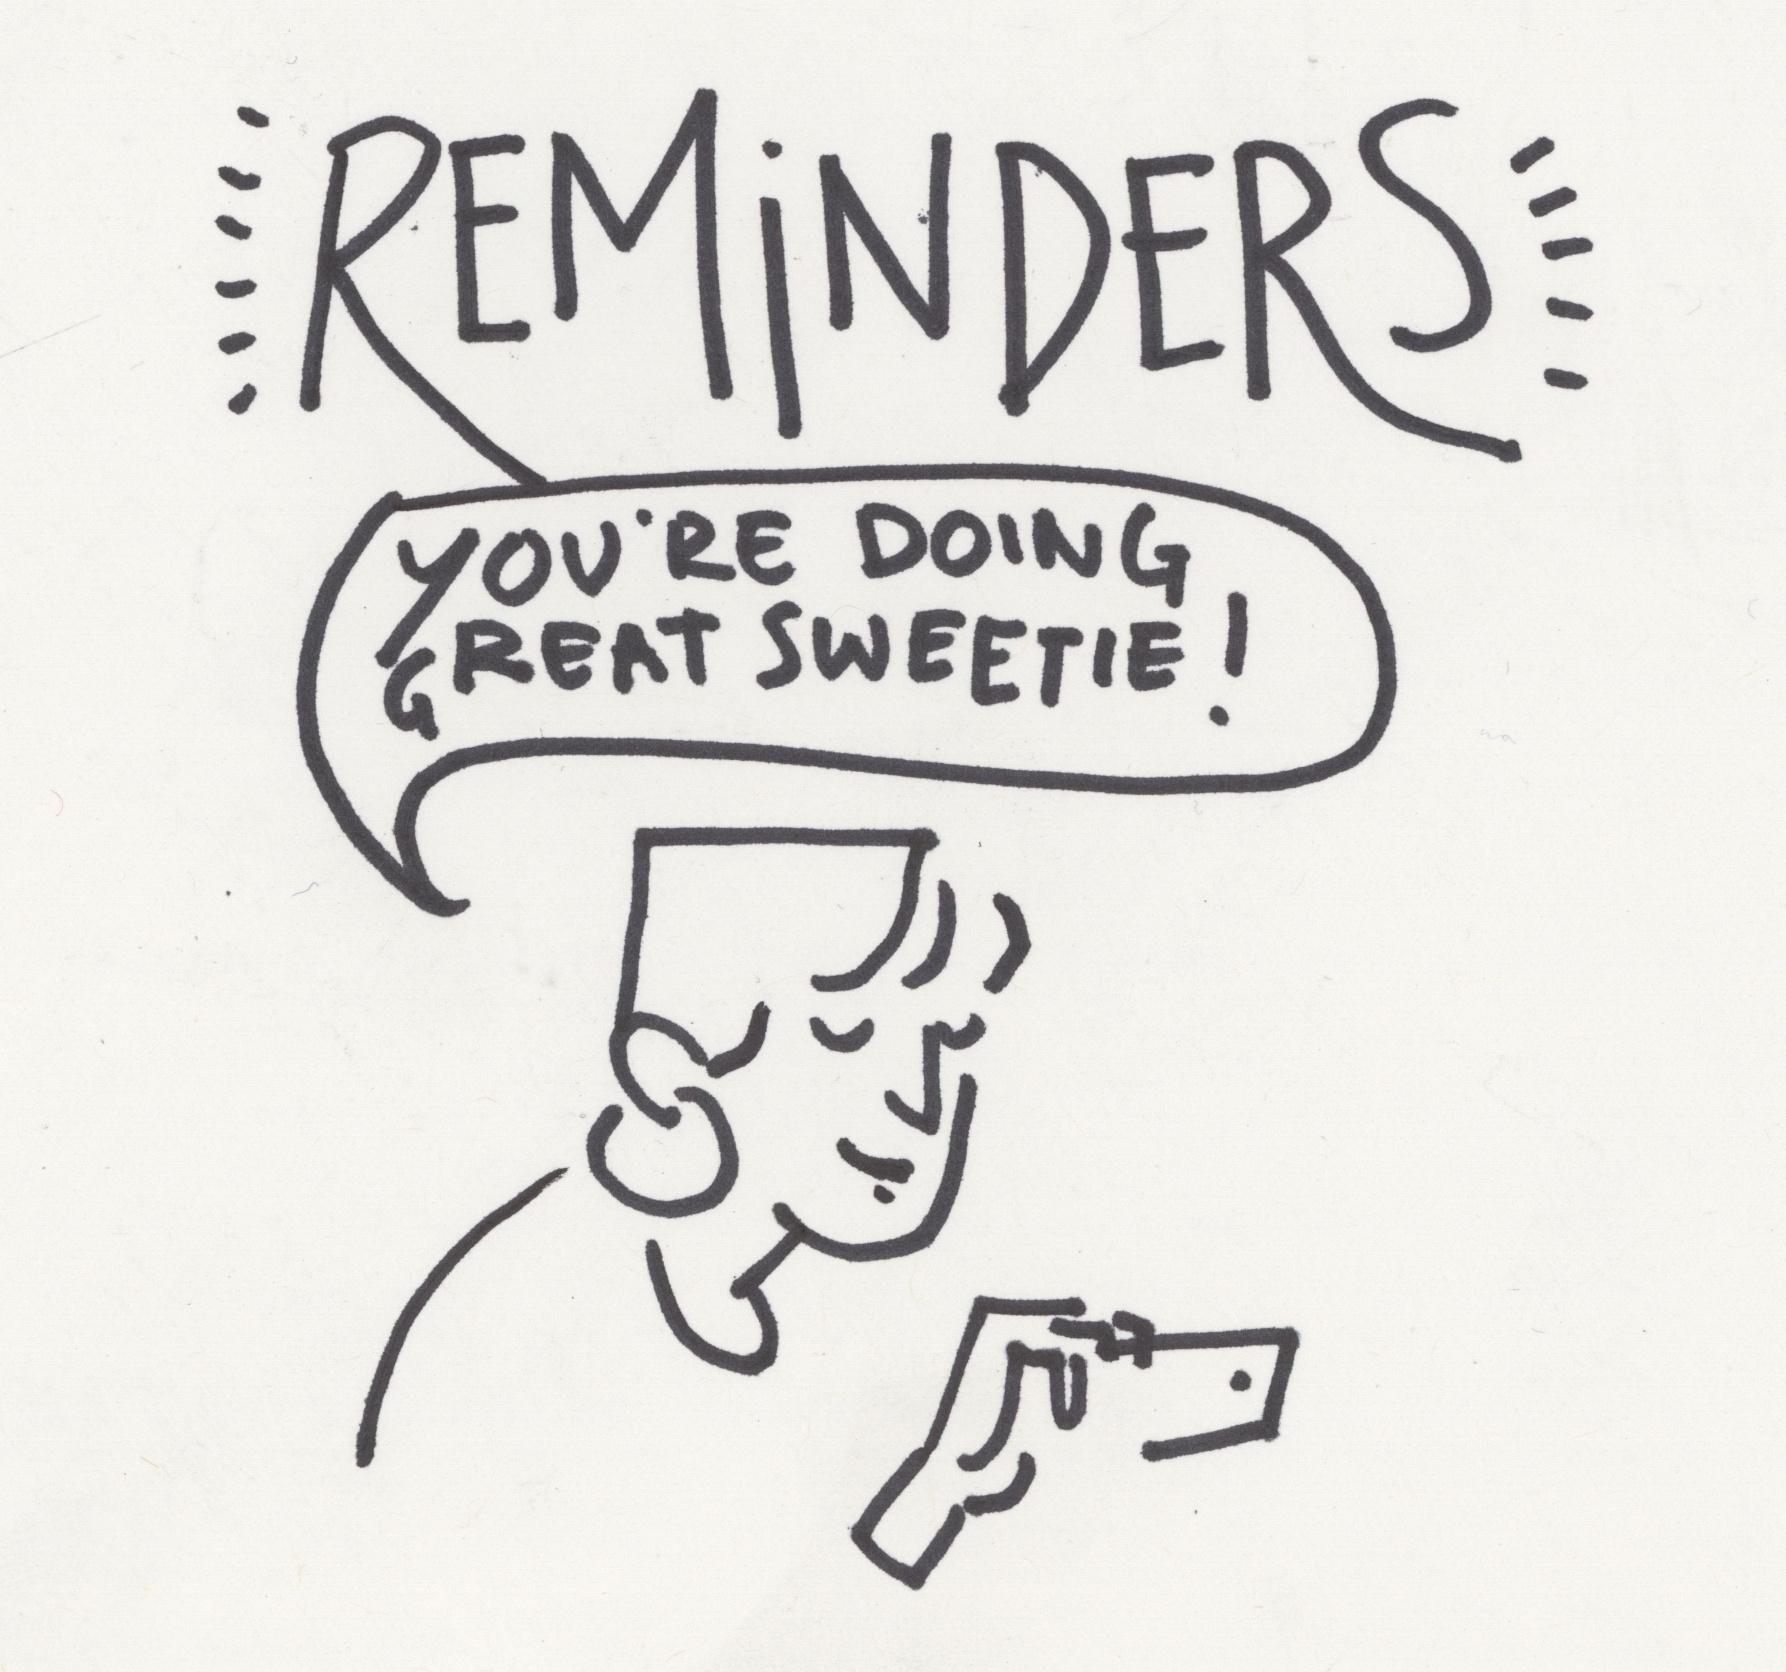 REMiNDERS
YOU'RE DOING
GREAT SWEETIE!